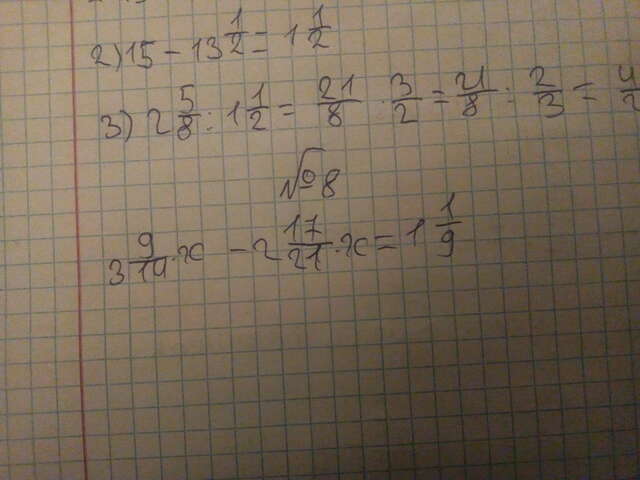 2) 15 - 13 1/2 = 1 1/2
3) 2 5/8 : 1 1/2 = 21/8 · 3/2 = 21/8 : 2/3 =
№8
3 9/14 · x - 2 17/21 · x = 1 1/9